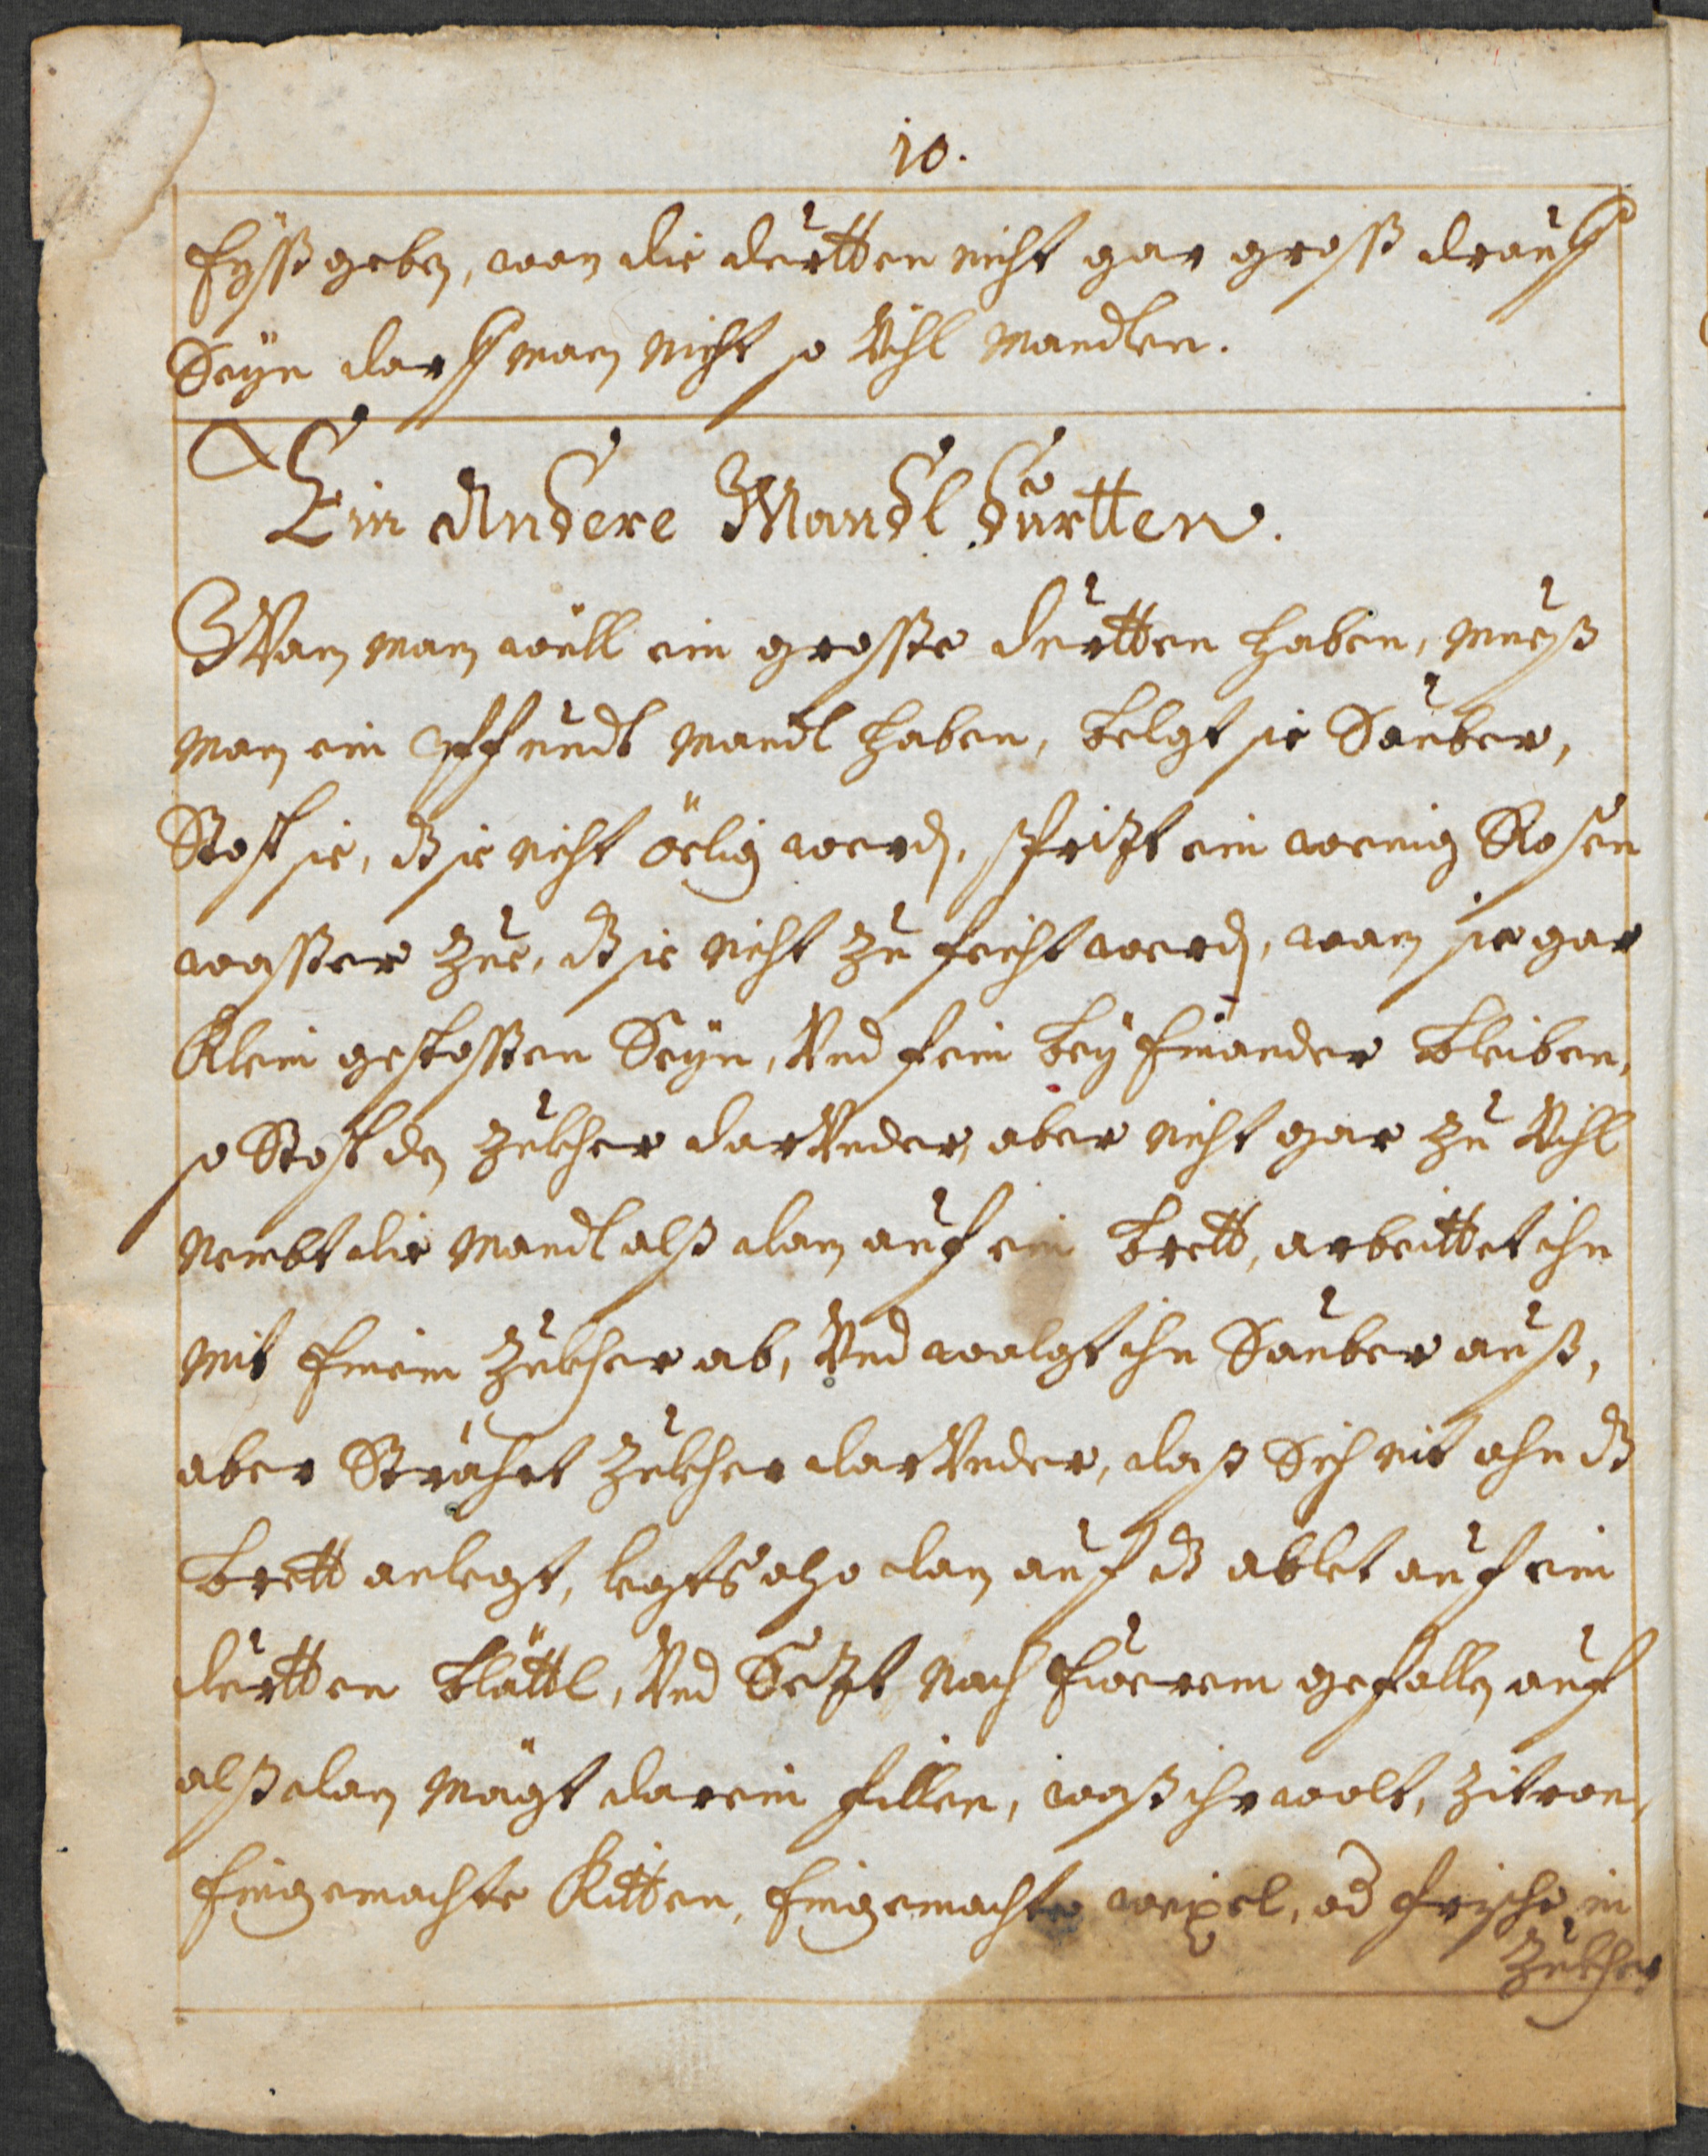 10.
Eyß geben, wan die durtten nicht gar groß drauß
Seyn darff man nicht so Vihl Mandlen.
Ein Andere Mandl Durtten.
Wan man wüll ein grosse durtten haben, mueß
man ein Pffundt Mandl haben, belgt sie Sauber,
Stost sie, dß sie nicht öelig werdn, spritzt ein wenig Rosen
wasser zue, dß sie nicht zu feicht werdn, wan sie gar
Klein gestossen Seyn, Vnd fein bey Einander bleiben,
so Stost den Zukher darVnder, aber nicht gar zu Vihl
Nembt die Mandl alß dan auf ein brett, arbeittet ihn
mit Einem Zukher ab, Vnd walgt ihn Sauber auß,
aber Strähet Zukher darVnder, daß Sich nit ahn dß
brett anlegt, legts also dan auf dß oblet auf ein
durtten blättl, Vnd Setzt nach Euerem gefallen auf
alß dan mögt darein fillen, waß ihr wolt, Zitron,
Eingemachte Kitten, Eingemachte weixel, od frische in
Zukher